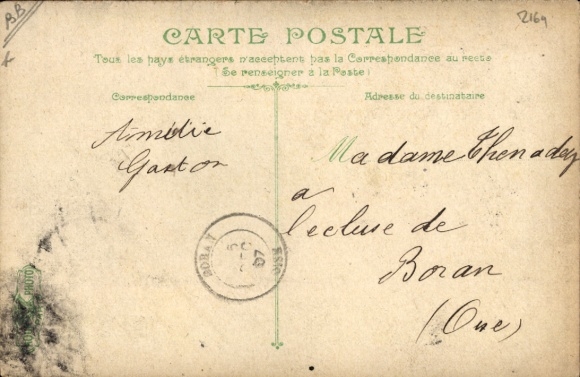 BB
2169
CARTE POSTALE
Tous les pays étrangers n'acceptent pas la Correspondance au recto
(Se renseigner à la Poste)
Correspondance
Adresse du destinataire
Amédée
Gaston
Madame Thenadey
a
l'ecluse de
Boran
(Oise)
BORAN
OISE
07